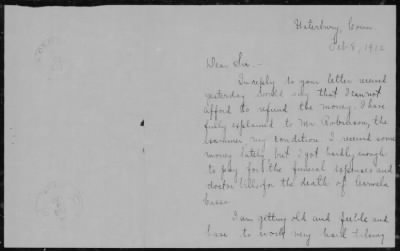 Waterbury, Conn.
Oct. 8, 1912
Dear Sir:-
In reply to your letter received
yesterday would say that I cannot
afford to refund the money. I have
fully explained to Mr Robinson, the
examiner my condition. I received some
money lately but I got hardly enough
to pay for the funeral expenses and
doctor bills for the death of Carmela
Russo.
I am getting old and feeble and
have to work very hard to bring